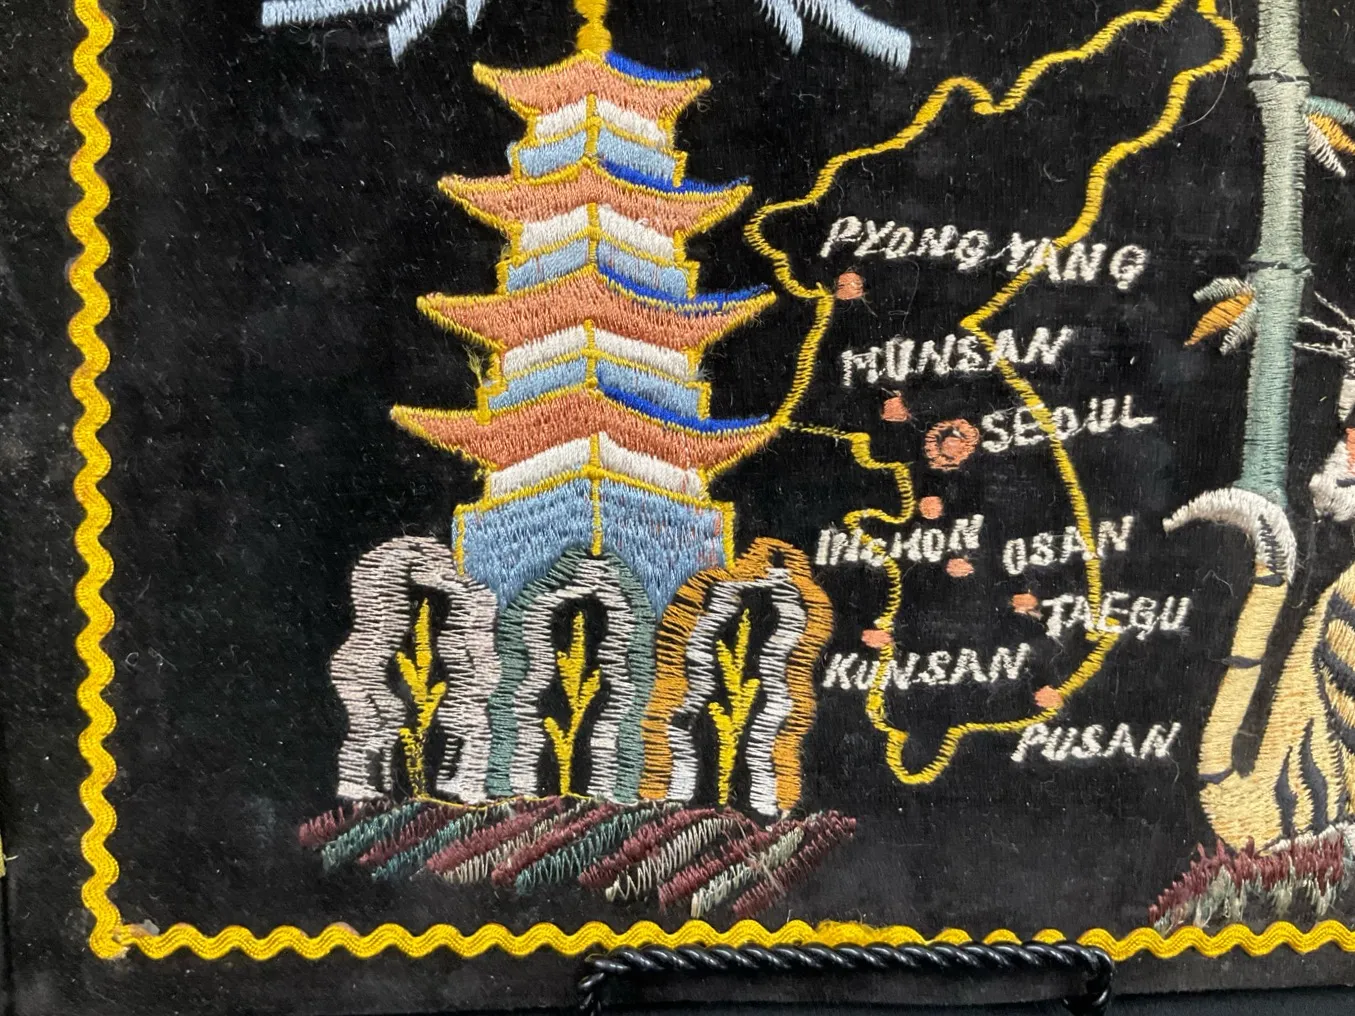 PYONGYANG
MUNSAN
SEOUL
INCHON
OSAN
TAEGU
KUNSAN
PUSAN